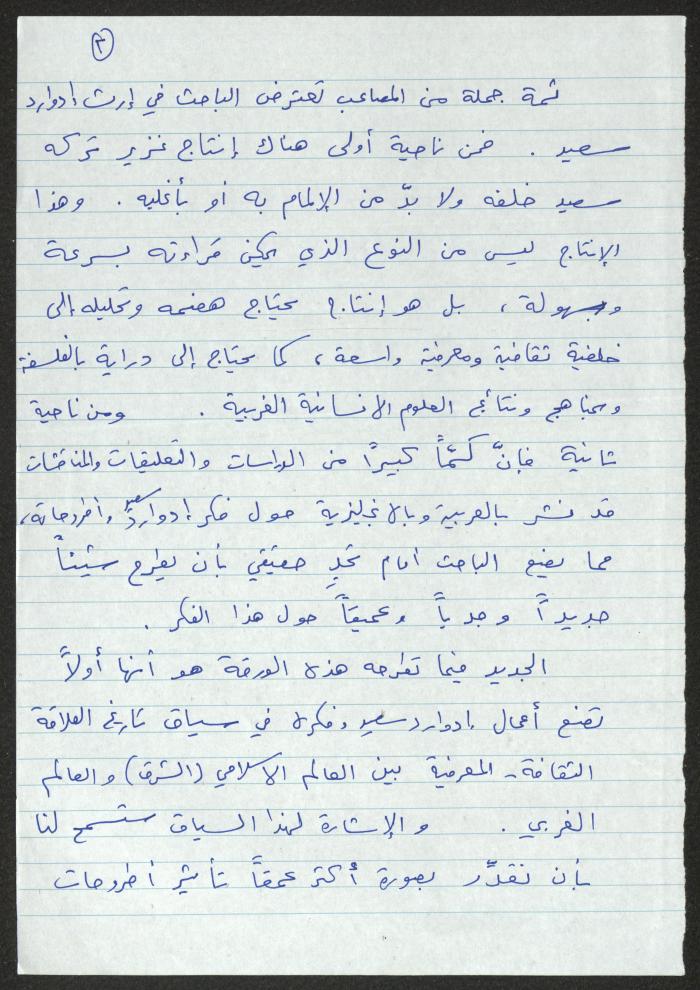 ٢
ثمة جملة من المصاعب تعترض الباحث في إرث إدوارد
سعيد . فمن ناحية أولى هناك إنتاج غزير تركه
سعيد خلفه ولا بدّ من الإلمام به أو بأغلبه . وهذا
الإنتاج ليس من النوع الذي يمكن قراءته بسرعة
وبسهولة ، بل هو إنتاج يحتاج هضمه وتحليله إلى
خلفية ثقافية ومعرفية واسعة ، كما يحتاج إلى دراية بالفلسفة
وبمناهج ونتائج العلوم الانسانية الغربية . ومن ناحية
ثانية فإنّ كمّاً كبيراً من الدراسات والتعليقات والمناقشات
قد نشر بالعربية وبالانجليزية حول فكر إدوارد سعيد وأطروحاته ،
مما يضع الباحث أمام تحدٍ حقيقي بأن يطرح شيئاً
جديداً وجدياً وعميقاً حول هذا الفكر .
الجديد فيما تطرحه هذه الورقة هو أنها أولاً
تضع أعمال إدوارد سعيد وفكره في سياق تاريخ العلاقة
الثقافة - المعرفية بين العالم الاسلامي (الشرق) والعالم
الغربي . والإشارة لهذا السياق ستسمح لنا
بأن نقدّر بصورة أكثر عمقاً تأثير أطروحات